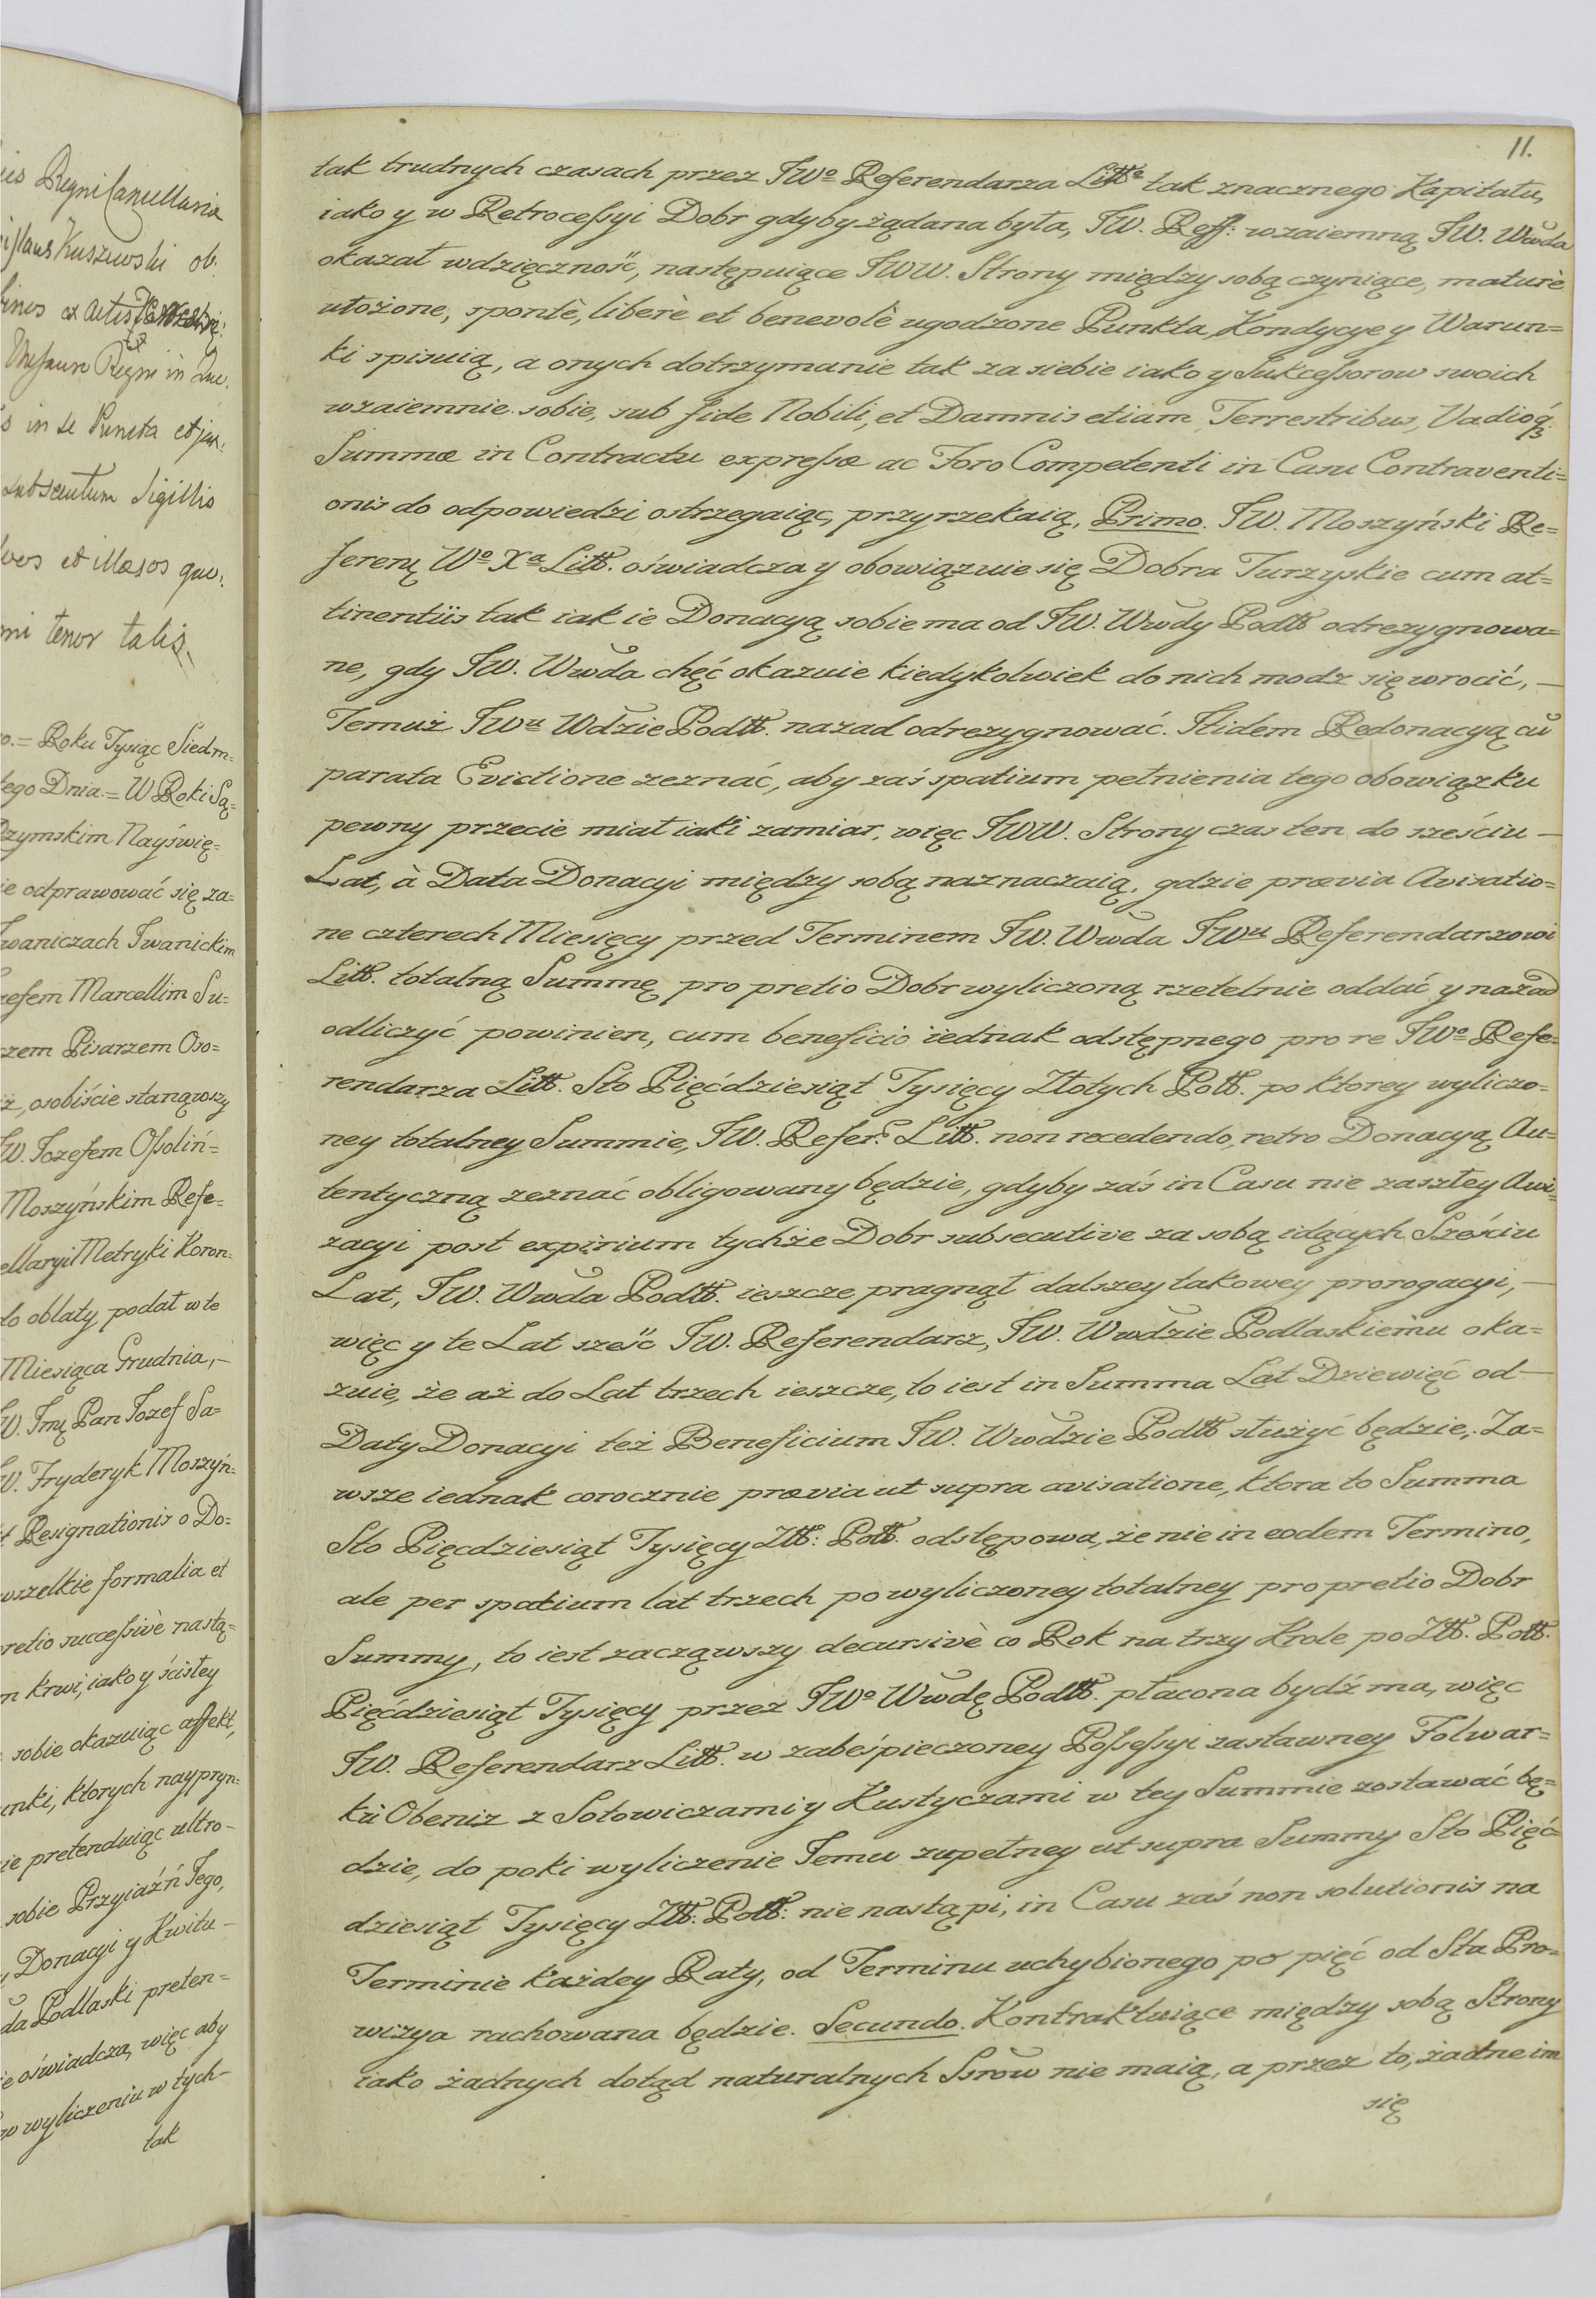 ies Regni Cancellaria
Kuszewski ob:
fines ex Actis
Regni in
s in se Puncta et
subsecutum Sigillis
vos et illæsos quo:
mi tenor talis
o. = Roku Tysiąc Siedm=
tego Dnia = W Roki Są=
Rzymskim Nayświę=
ie odprawować się za=
Iwaniczach Iwanickim
zefem Marcellim Su=
zem Pisarzem Oso=
ż, osobiście stanąwszy
JW. Iozefem Ossoliń=
Moszyńskim Refe=
ellaryi Metryki Koron=
do oblaty podał w te
Miesiąca Grudnia, –
W. Jmę Pan Iozef Sa=
W. Fryderyk Moszyń=
t Resignationis o Do=
wszelkie formalia et
pretio successivè nastą=
m krwi, iako y ścisłey
sobie okazuiąc affekt,
unki, ktorych naypryn=
ie pretenduiąc ultro –
sobie Przyiaźń Jego,
, Donacyi y Kwitu –
da Podlaski preten=
ie oświadcza, więc aby
po wyliczeniu w tych –
tak
11.
tak trudnych czasach przez JWº Referendarza Littº tak znacznego Kapitału,
iako y w Retrocessyi Dobr gdyby żądana była, JW. Reff: wzaiemną JW. Wwda
okazał wdzięczność, następuiące JWW. Strony między sobą czyniące, maturè
ułożone, spontè, liberè et benevolè ugodzone Punkta, Kondycye y Warun=
ki spisuią, a onych dotrzymanie tak za siebie iako y Sukcessorow swoich
wzaiemnie sobie, sub fide Nobili, et Damnis etiam Terrestribus, Vadioq3
Summæ in Contractu expressæ ac Foro Competenti in Casu Contraventi=
onis do odpowiedzi ostrzegaiąc, przyrzekaią, Primo. JW. Moszyński Re=
ferenę Wº Xª Litt. oświadcza y obowiązuie się Dobra Turzyskie cum at=
tinentiis tak iak ie Donacyą sobie ma od JW. Wwdy Podlt odrezygnowa=
ne, gdy JW. Wwda chęć okazuie kiedykolwiek do nich modz się wrocić, –
Temuż JWu Wdzie Podlt. nazad odrezygnować. Itidem Redonacyą cu
parata Evictione zeznać, aby zaś spatium pełnienia tego obowiązku
pewny przecie miał iaki zamiar, więc JWW. Strony czas ten do sześciu –
Lat, à Data Donacyi między sobą naznaczaią, gdzie prævia Avisatio=
ne czterech Miesięcy przed Terminem JW. Wwda JWu Referendarzowi
Litt. totalną Summę pro pretio Dobr wyliczoną rzetelnie oddać y nazad
odliczyć powinien, cum beneficio iednak odstępnego pro re JWº Refe=
rendarza Litt. Sto Pięćdziesiąt Tysięcy Złotych Polt. po ktorey wyliczo=
ney totalney Summie, JW. Refer: Litt. non recedendo, retro Donacyą Au=
tentyczną zeznać obligowany będzie, gdyby zaś in Casu nie zaszłey Awi=
zacyi post expirium tychże Dobr subsecutive za sobą idących Sześciu
Lat, JW. Wwda Podlt. ieszcze pragnął dalszey takowey prorogacyi, –
więc y te Lat sześć JW. Referendarz, JW. Wwdzie Podlaskiemu oka=
zuie, że aż do Lat trzech ieszcze, to iest in Summa Lat Dziewięć od –
Daty Donacyi też Beneficium JW. Wwdzie Podlt służyć będzie, Za=
wsze iednak corocznie prævia ut supra avisatione, ktora to Summa
Sto Pięcdziesiąt Tysięcy Złt: Polt. odstępowa, że nie in eodem Termino,
ale per spatium lat trzech po wyliczoney totalney pro pretio Dobr
Summy, to iest zacząwszy decursivè co Rok na trzy Krole po Złt. Polt.
Pięćdziesiąt Tysięcy przez JWº Wwdę Podlt. płacona bydź ma, więc
JW. Referendarz Litt. w zabeśpieczoney Possessyi zastawney Folwar=
ku Obeniz z Sołowiczami y Kustyczami w tey Summie zostawać bę=
dzie, do poki wyliczenie Jemu zupełney ut supra Summy Sto Pięć=
dziesiąt Tysięcy Złt. Polt: nie nastąpi, in Casu zaś non solutionis na
Terminie każdey Raty, od Terminu uchybionego po pięć od Sta Pro=
wizya rachowana będzie. Secundo. Kontraktuiące między sobą Strony
iako żadnych dotąd naturalnych Ssrow nie maią, a przez to, żadne im
się